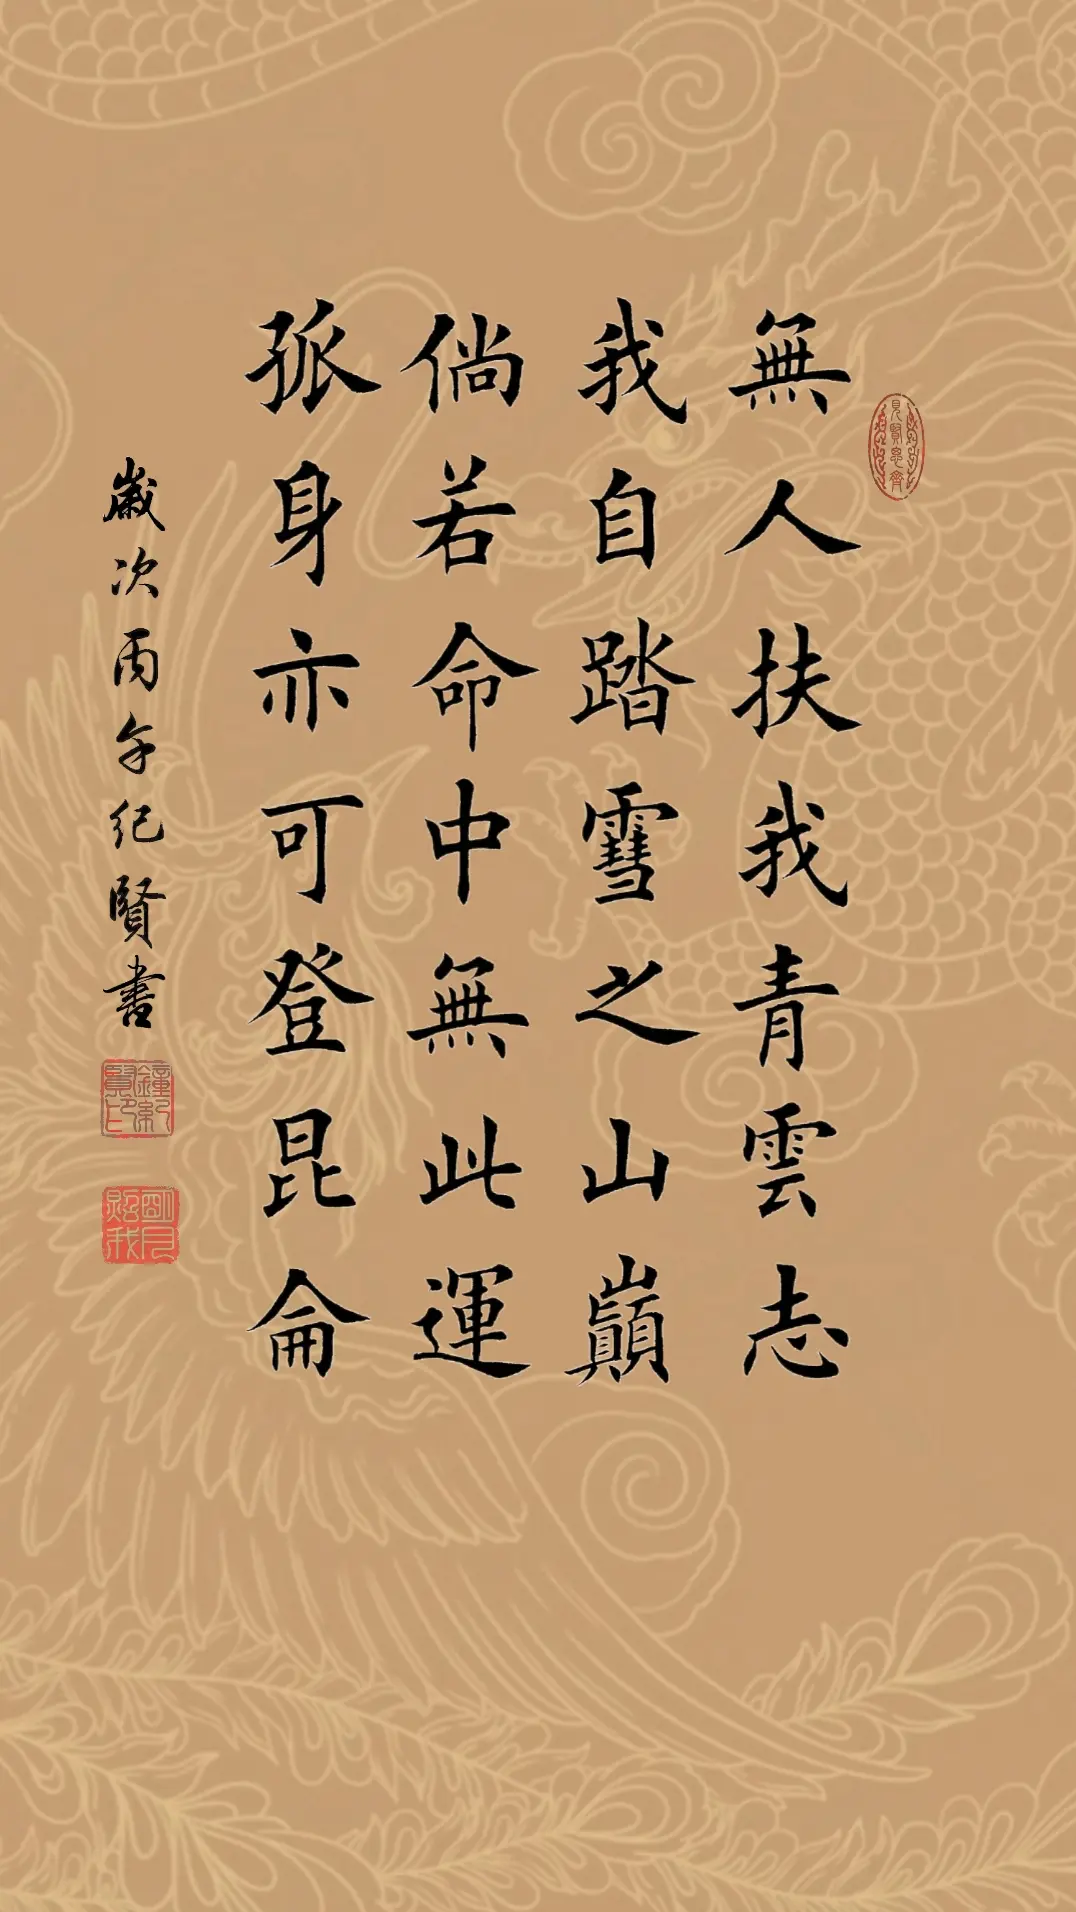 無人扶我青雲志
我自踏雪之山巔
倘若命中無此運
孤身亦可登昆侖
歲次丙午纪賢書
見賢思齊
鐘紀賢印